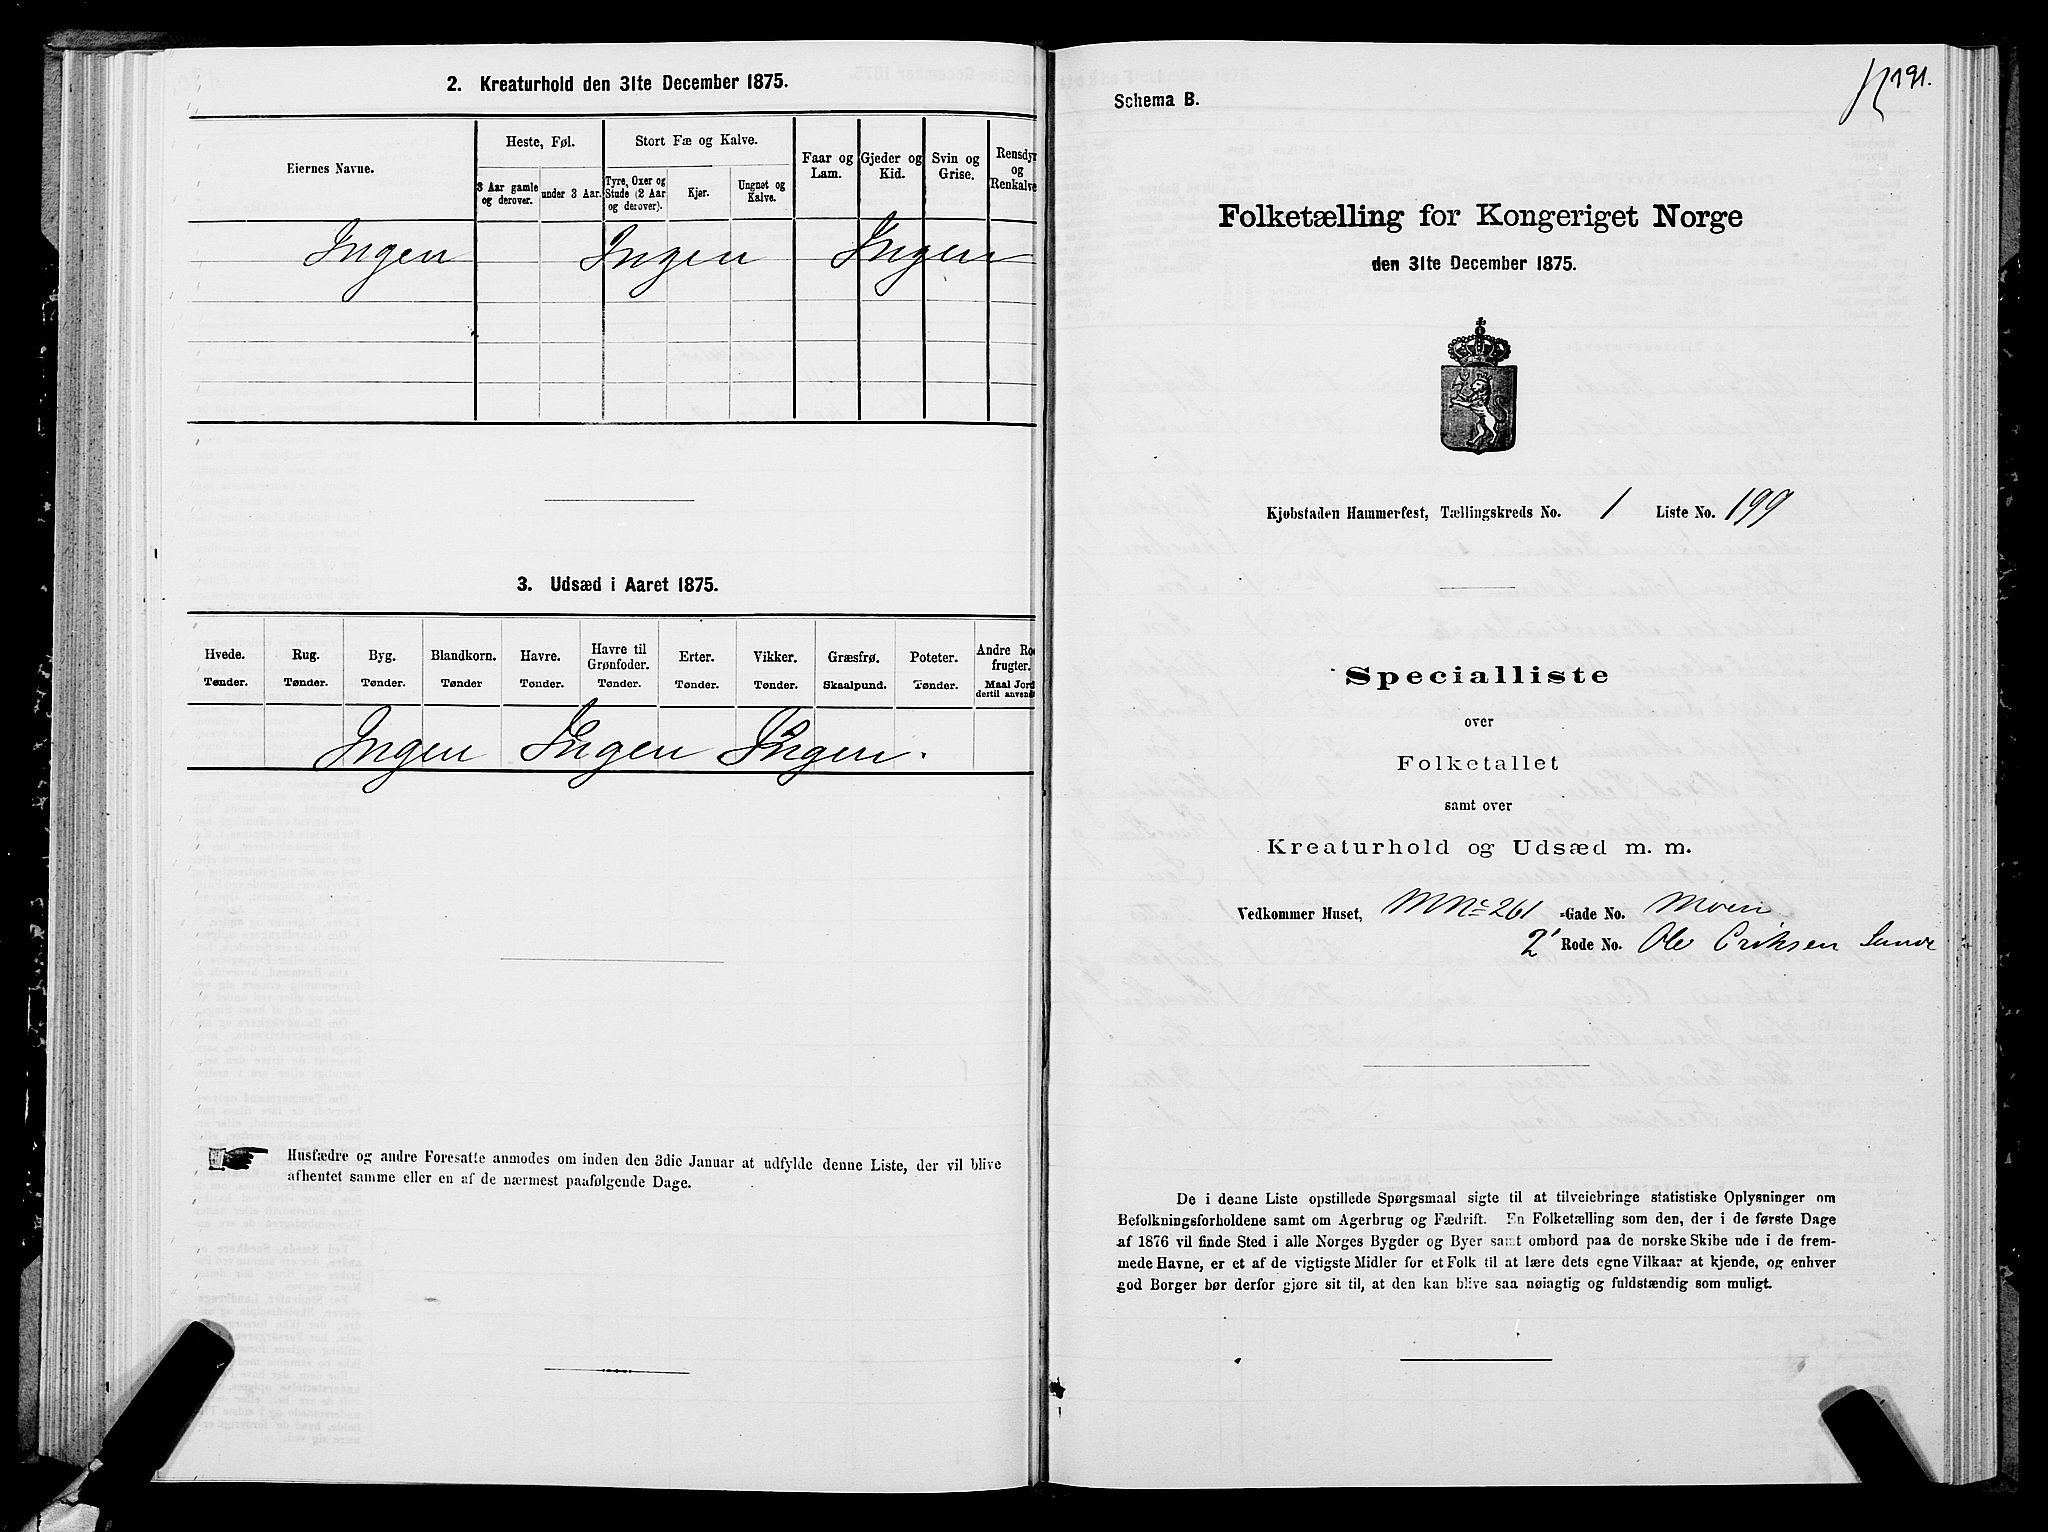 2. Kreaturhold den 31te December 1875.
Eiernes Navne.
Heste, Føl.
Stort Fæ og Kalve.
Faar og Lam.
Gjeder og Kid.
Svin og Grise.
Rensdyr og Renkalve
3 Aar gamle og derover.
under 3 Aar.
Tyre, Oxer og Stude (2 Aar og derover).
Kjør.
Ungnøt og Kalve.
Ingen Ingen Ingen
3. Udsæd i Aaret 1875.
Hvede. Rug. Byg. Blandkorn. Havre. Havre til Grønfoder. Erter. Vikker. Græsfrø. Poteter. Andre Ro frugter.
Tønder. Tønder. Tønder. Tønder Tønder. Tønder. Tønder. Tønder. Skaalpund. Tønder. Maal Jord dertil anvend
Ingen Ingen Ingen.
Husfædre og andre Foresatte anmodes om inden den 3die Januar at udfylde denne Liste, der vil blive
afhentet samme eller en af de nærmest paafølgende Dage.
191.
Schema B.
Folketælling for Kongeriget Norge
den 31te December 1875.
Kjøbstaden Hammerfest, Tællingskreds No. 1 Liste No. 199
Specialliste
over
Folketallet
samt over
Kreaturhold og Udsæd m. m.
Vedkommer Huset, MNo 261 -Gade No. Moen
2' Rode No. Ole Eriksen Sunde
De i denne Liste opstillede Spørgsmaal sigte til at tilveiebringe statistiske Oplysninger om
Befolkningsforholdene samt om Agerbrug og Fædrift. En Folketælling som den, der i de første Dage
af 1876 vil finde Sted i alle Norges Bygder og Byer samt ombord paa de norske Skibe ude i de frem-
mede Havne, er et af de vigtigste Midler for et Folk til at lære dets egne Vilkaar at kjende, og enhver
god Borger bør derfor gjøre sit til, at den kan blive saa nøiagtig og fuldstændig som muligt.